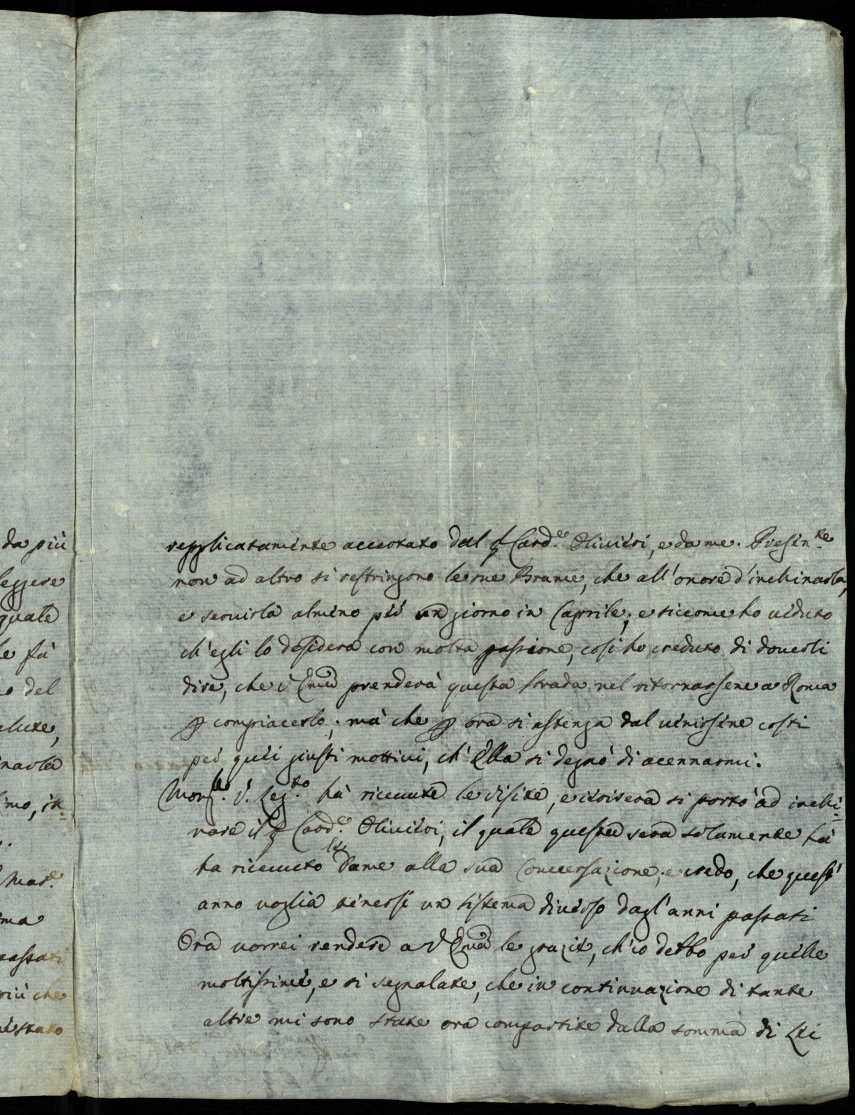 da più
leggere
quale
le fà
o del
alute,
inarla
imo, in=
Mad.
ma
passati
più che
stato
repplicatamente accertato dal Card.e Oliuieri, e da me. Presen.te
non ad altro si restringono le sue Brame, che all'onore d'inchinarla,
e seruirla almeno per un giorno in Caprile; e siccome ho ueduto
ch'egli lo desidera con molta passione, così ho creduto di douerli
dire, che V. Emza prenderà questa strada nel ritornarsene a Roma
p compiacerlo; mà che p ora si astenga dal uenirsene costì
per quei giusti mottiui, ch'Ella si degnò di acennarmi.
Mons.r V. Leg.to hà riceuute le uisite, e iersera si portò ad inchi=
nare il Card.e Oliuieri, il quale questa sera solamente hà
ha riceuuto le Dame alla sua Conuersazione, e credo, che quest'
anno uoglia tenersi un sistema diuerso dagl'anni passati
Ora uorrei rendere a V. Emza le grazie, ch'io debbo per quelle
moltissime, e si segnalate, che in continuazione di tante
altre mi sono state ora compartite dalla somma di Lei